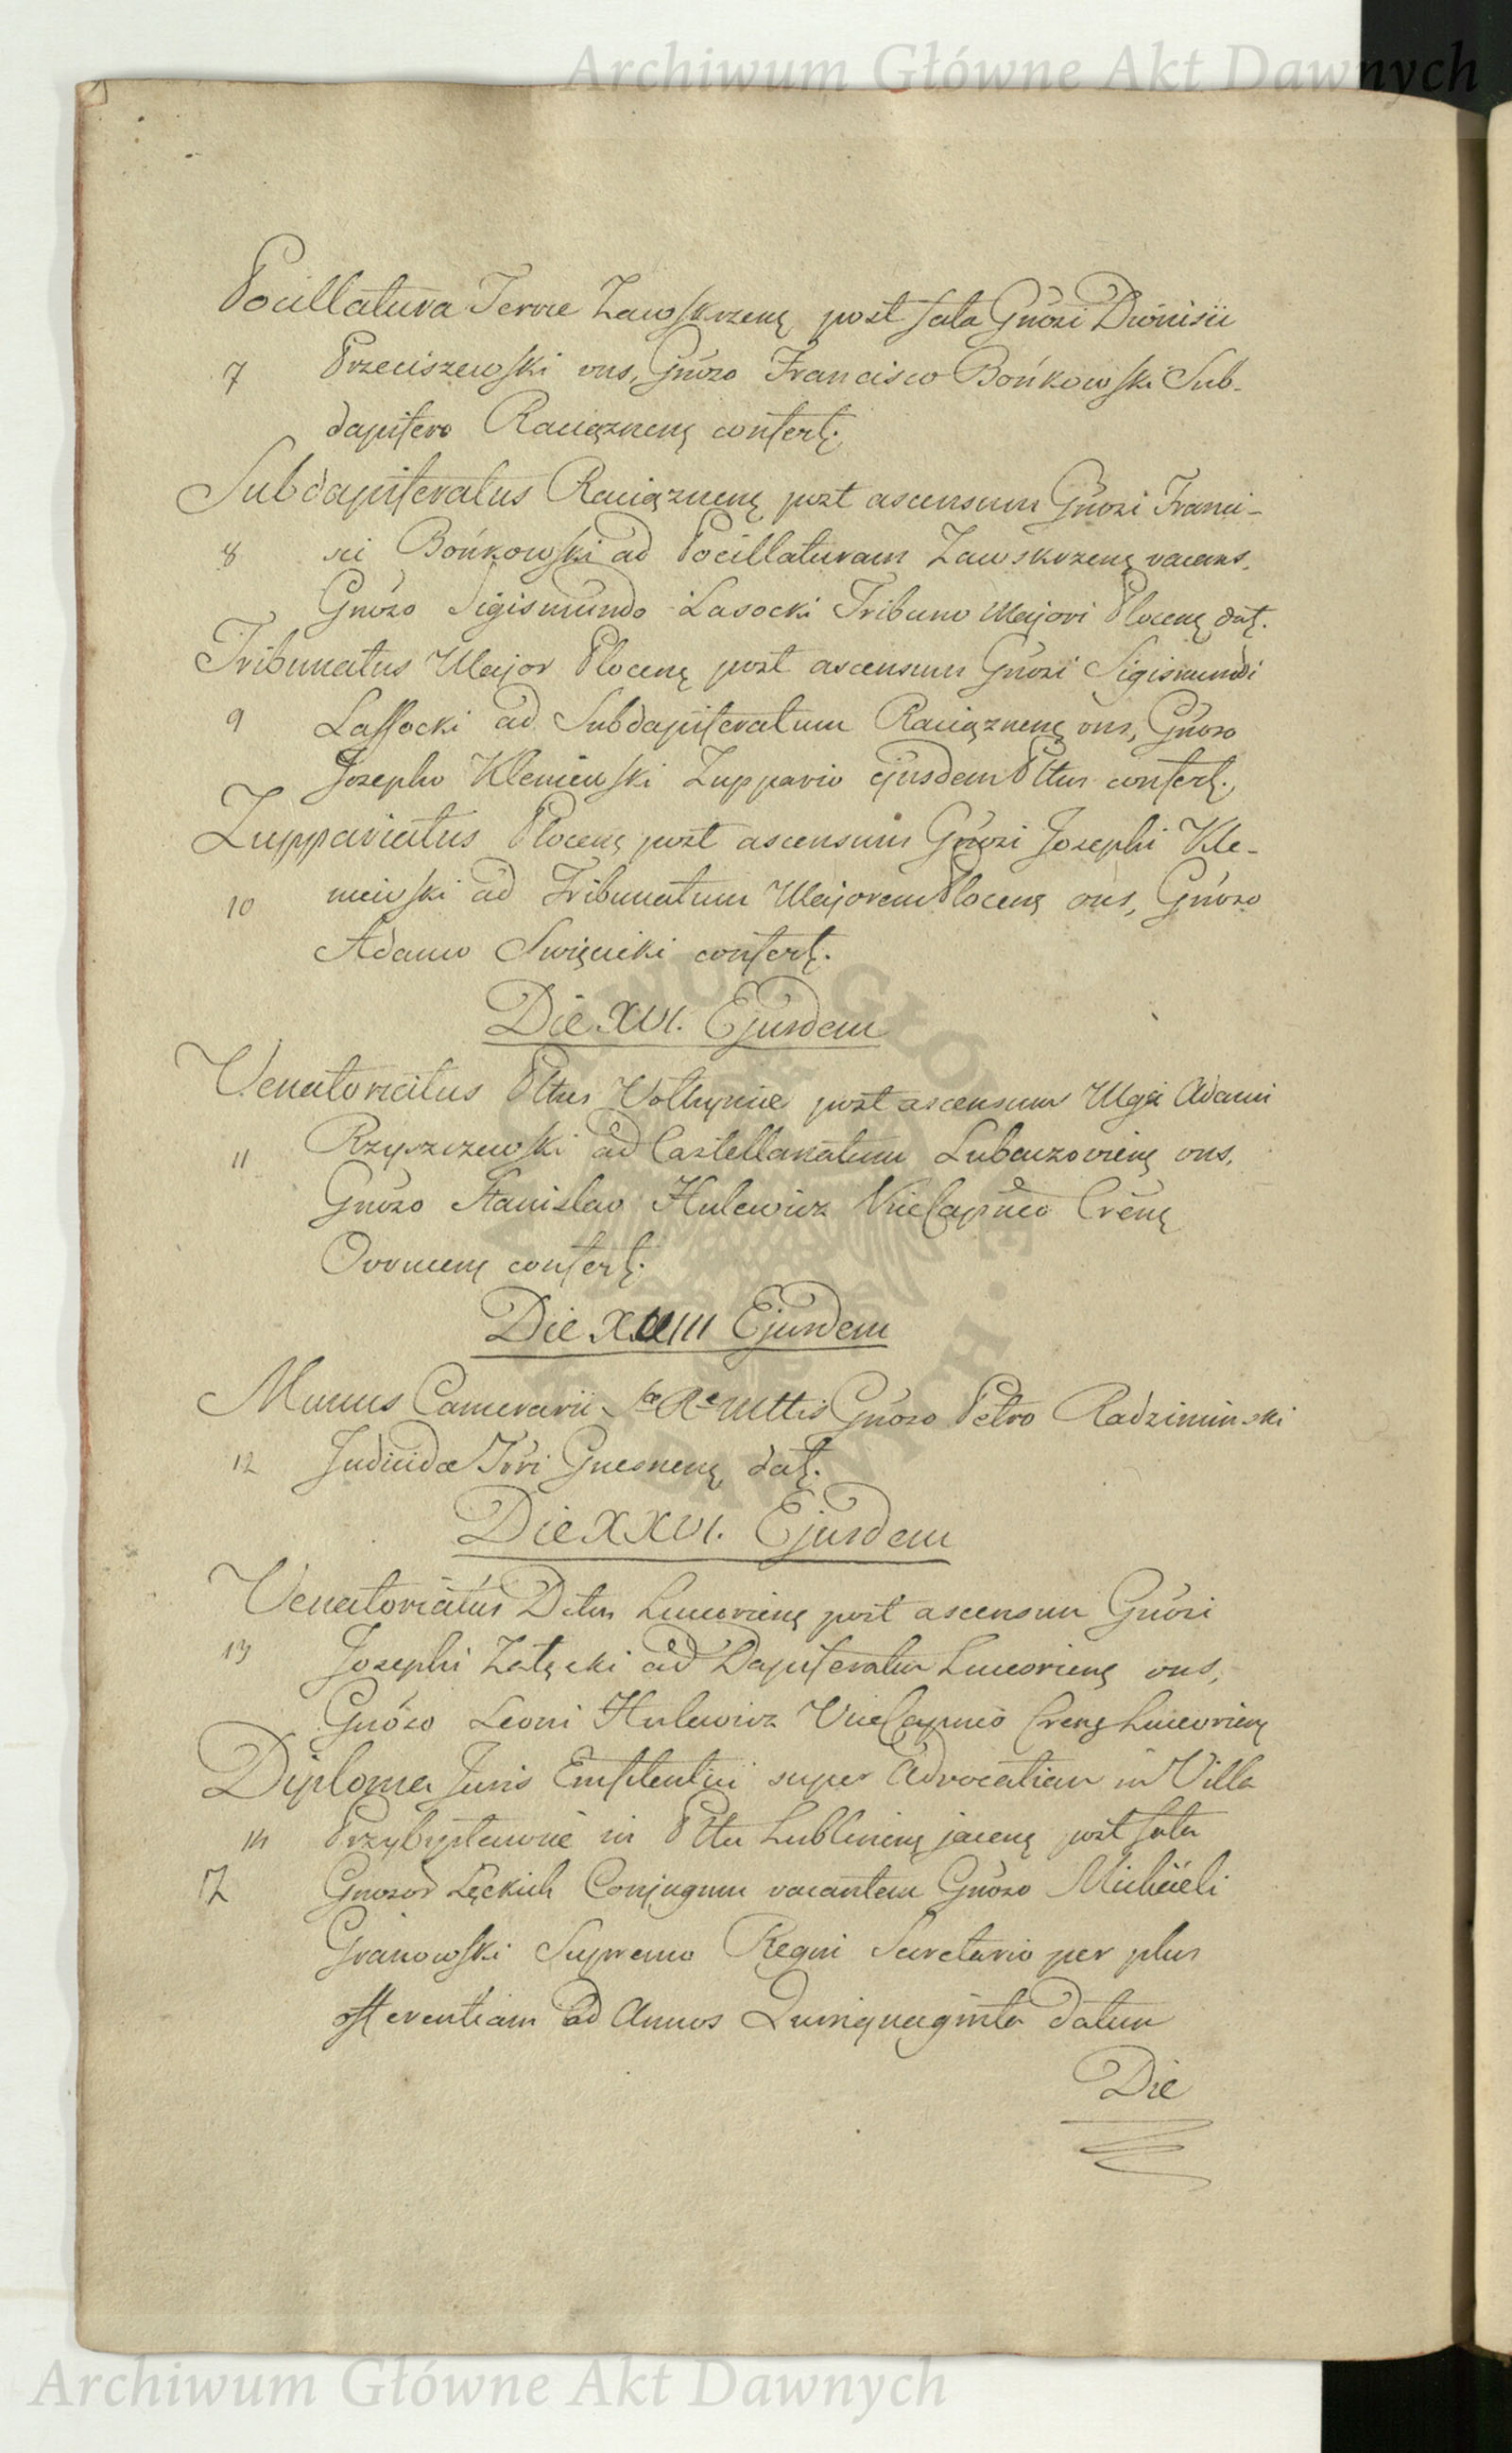 Archiwum Główne Akt Dawnych
Pocillatura Terræ Zawskrzenę post fata Gnosi Dionisii
7 Przeciszewski vns, Gnoso Francisco Bońkowski Sub-
dapifero Raciąznenę confertę.
Subdapiferatus Raciąznenę post ascensum Gnosi Franci-
8 sci Bońkowski ad Pocillaturam Zawskrzenę vacans.
Gnoso Sigismundo Lasocki Tribuno Majori Plocenę datę.
Tribunatus Major Plocenę post ascensum Gnosi Sigismundi
9 Lassocki ad Subdapiferatum Raciąznenę vns, Gnoso
Josepho Kleniewski Zuppario ejusdem Pltus confertę.
Zuppariatus Plocenę post ascensum Gnosi Josephi Kle-
10 niewski ad Tribunatum Majorem Plocenę vns, Gnoso
Adamo Swięcicki confertę.
Die XVI. Ejusdem
Venatoriatus Pltus Volhyniæ post ascensum Mgci Adami
11 Rzyszczewski ad Castellanatum Lubaczovienę vns.
Gnoso Stanislao Hulewicz ViceCapneo Crenę
Ovrucenę confertę.
Die XVIII Ejusdem
Munus Camerarii Sæ Ræ Mttis Gnoso Petro Radziminski
12 Judicidæ Trri Gnesnenę datę.
Die XXVI. Ejusdem
Venatoriatus Dctus Luceorienę post ascensum Gnosi
13 Josephi Załęcki ad Dapiferatum Luceorienę vns,
Gnoso Leoni Hulewicz ViceCapneo Crenę Luceorienę
Diploma Juris Emfiteutici super Advocatiam in Villa
14 Przybysławice in Pltu Lublinenę jacenę post fata
17 Gnosor Łęckich Conjugum vacantem Gnoso Michaeli
Granowski Supremo Regni Secretario per plus
offerentiam ad Annos Quinquaginta datum
Die
Archiwum Główne Akt Dawnych